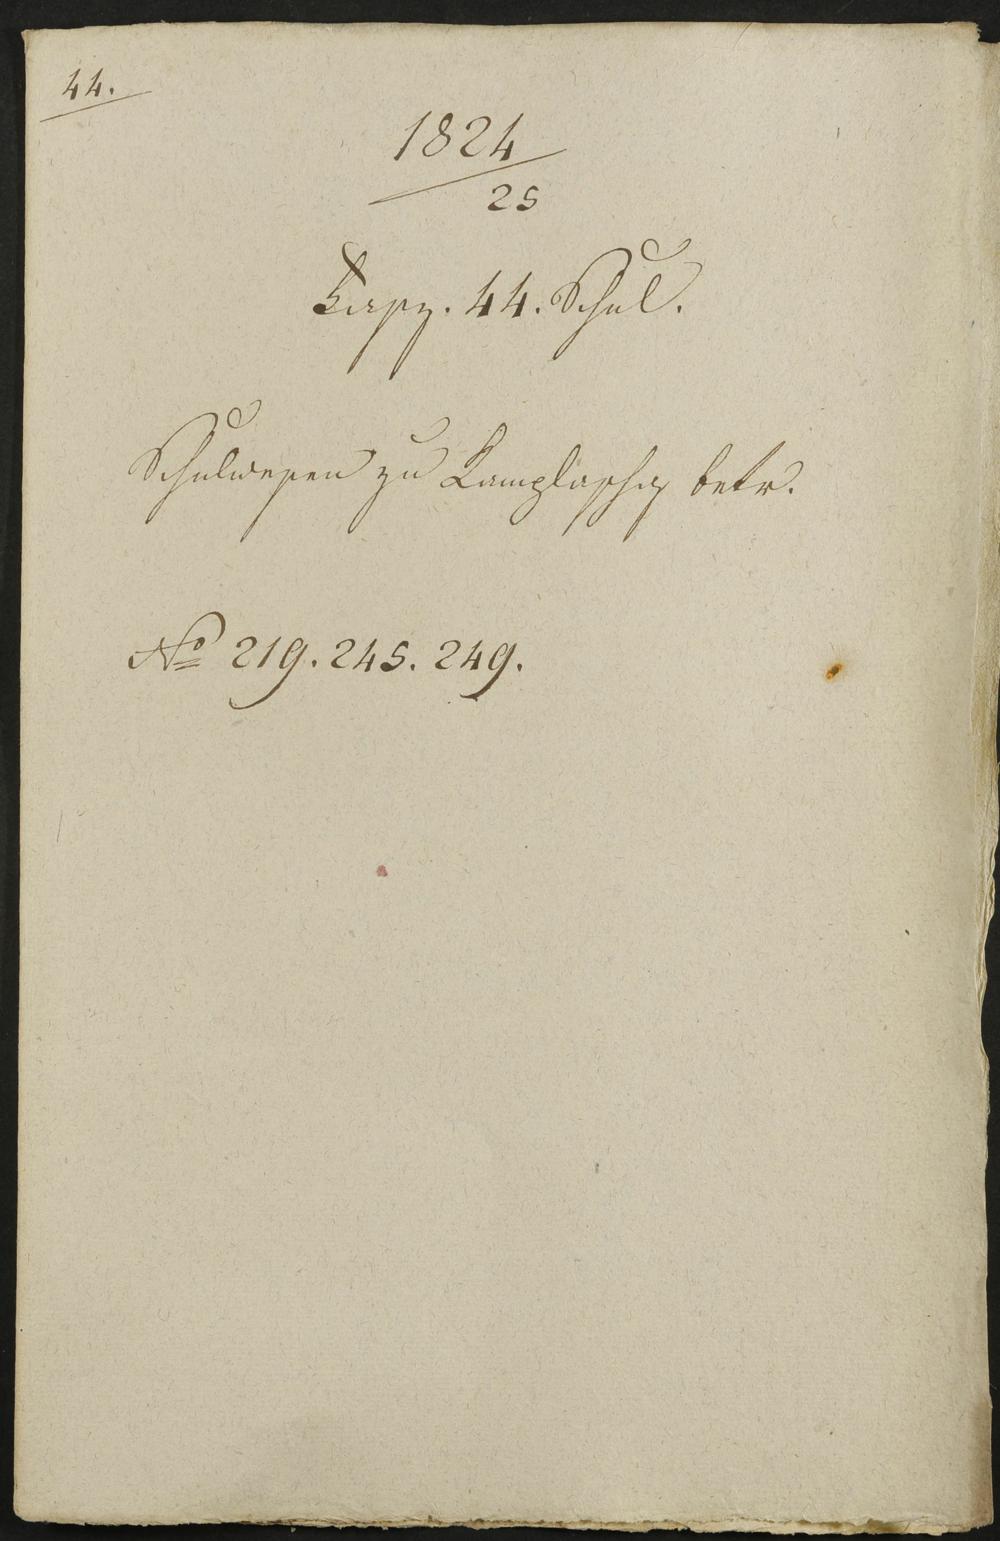 44.
1824
25
Fasz. 44. Schul.
Schulwesen zu betr.
No 219. 245. 249.